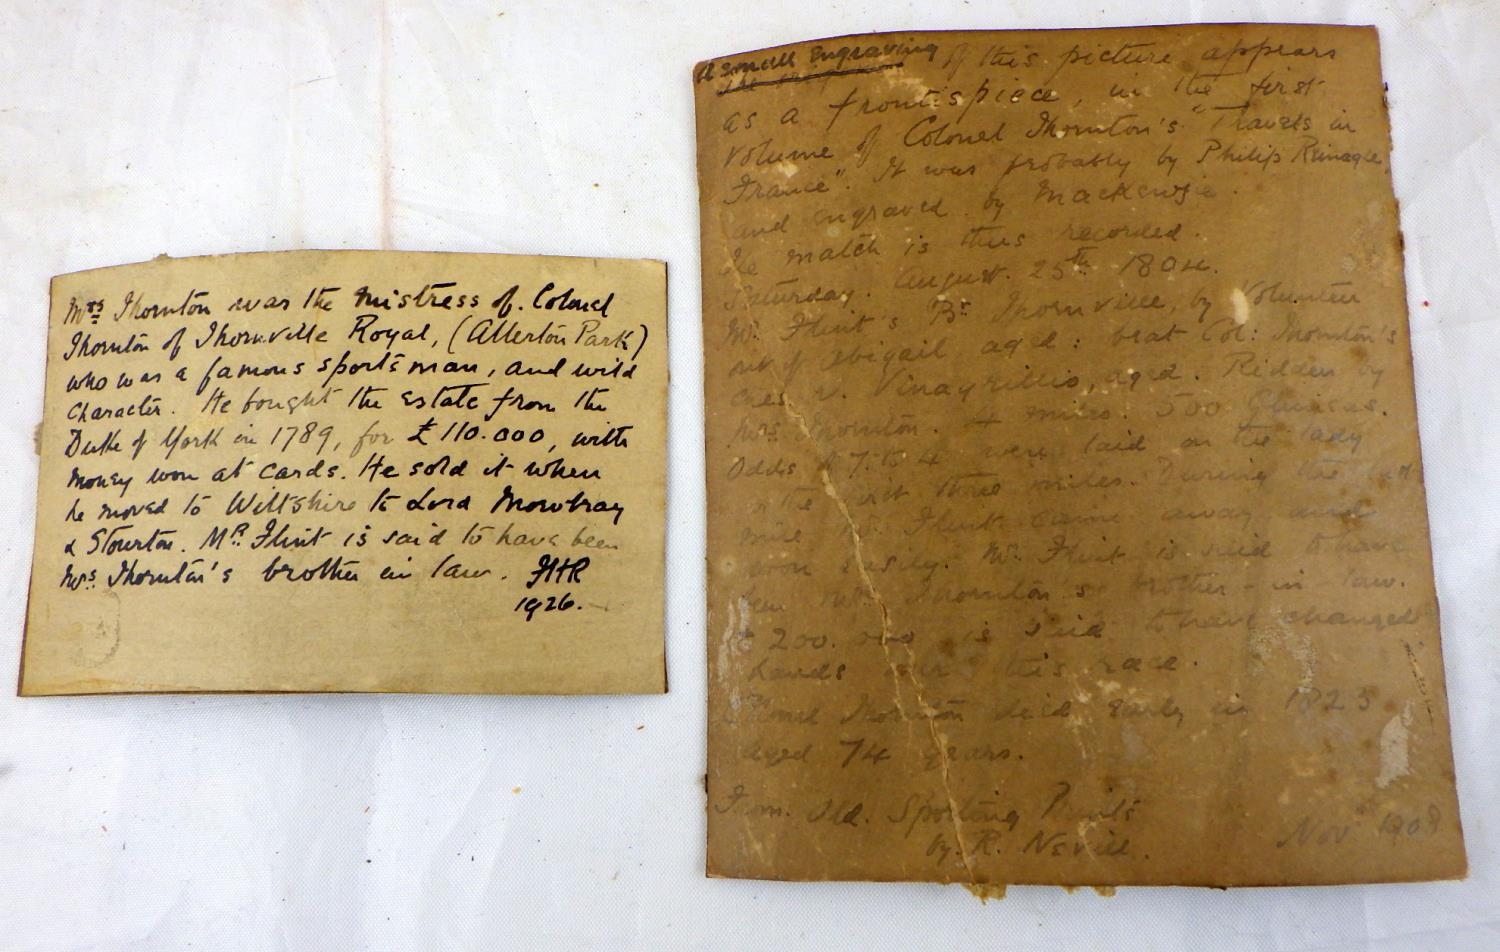 Mrs Thornton was the mistress of. Colonel
Thornton of Thornville Royal, (Allerton Park)
who was a famous sportsman, and wild
character. He bought the estate from the
Duke of York in 1789, for £110.000, with
money won at cards. He sold it when
he moved to Wiltshire to Lord Mowbray
& Stourton. Mr. Flint is said to have been
Mrs. Thornton's brother in law. FHR
1926.
A small Engraving of this picture appears
as a frontispiece, in the first
volume of Colonel Thornton's "Travels in
France". It was probably by Philip Reinagle
and engraved by Mackenzie.
The match is thus recorded.
Saturday. August. 25th 1804.
Mr. Flint's Br. Thornville, by Volunteer
out of Abigail aged: beat Col: Thornton's
ches. Vinagrillio, aged. Ridden by
Mrs Thornton. 4 miles. 500 Guineas.
Odds of 7 to 4 were laid on the lady
in the first three miles. During the last
mile Mr. Flint came away and
won easily. Mr. Flint is said to have
been Mrs. Thornton's brother-in-law.
£ 200.000 is said to have changed
hands over this race.
Colonel Thornton died early in 1823
aged 74 years.
From. Old. Sporting Prints
by. R. Nevill.
Nov 1908